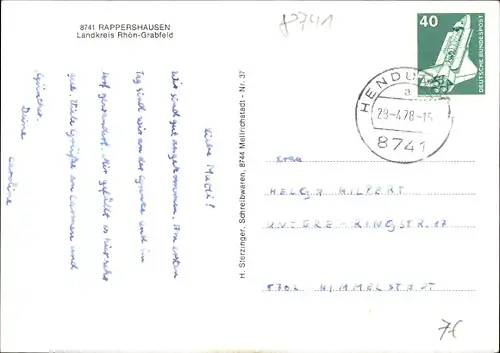 8741 RAPPERSHAUSEN
Landkreis Rhön-Grabfeld
8741
40
DEUTSCHE BUNDESPOST
HENDUN
a
28-4.78-15
8741
Liebe Mutti!
Wir sind gut angekommen. Am ersten
Tag sind wir an der Grenze und im
Hof gewandert. Mir gefällt es hier sehr
gut. Viele Grüße an Carmen und
Günther.
Deine
Caroline
H. Sterzinger, Schreibwaren, 8744 Mellrichstadt - Nr. 37
Frau
HELGA HILPERT
UNTERE-RINGSTR. 17
8702 HIMMELSTADT
7€